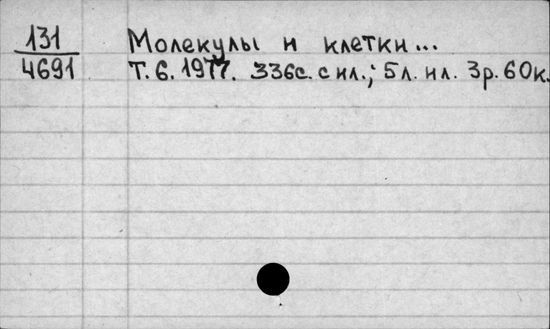 131 Молекулы и клетки...
4691 Т. 6. 1977. 336с. с ил.; 5л. ил. 3р. 60к.